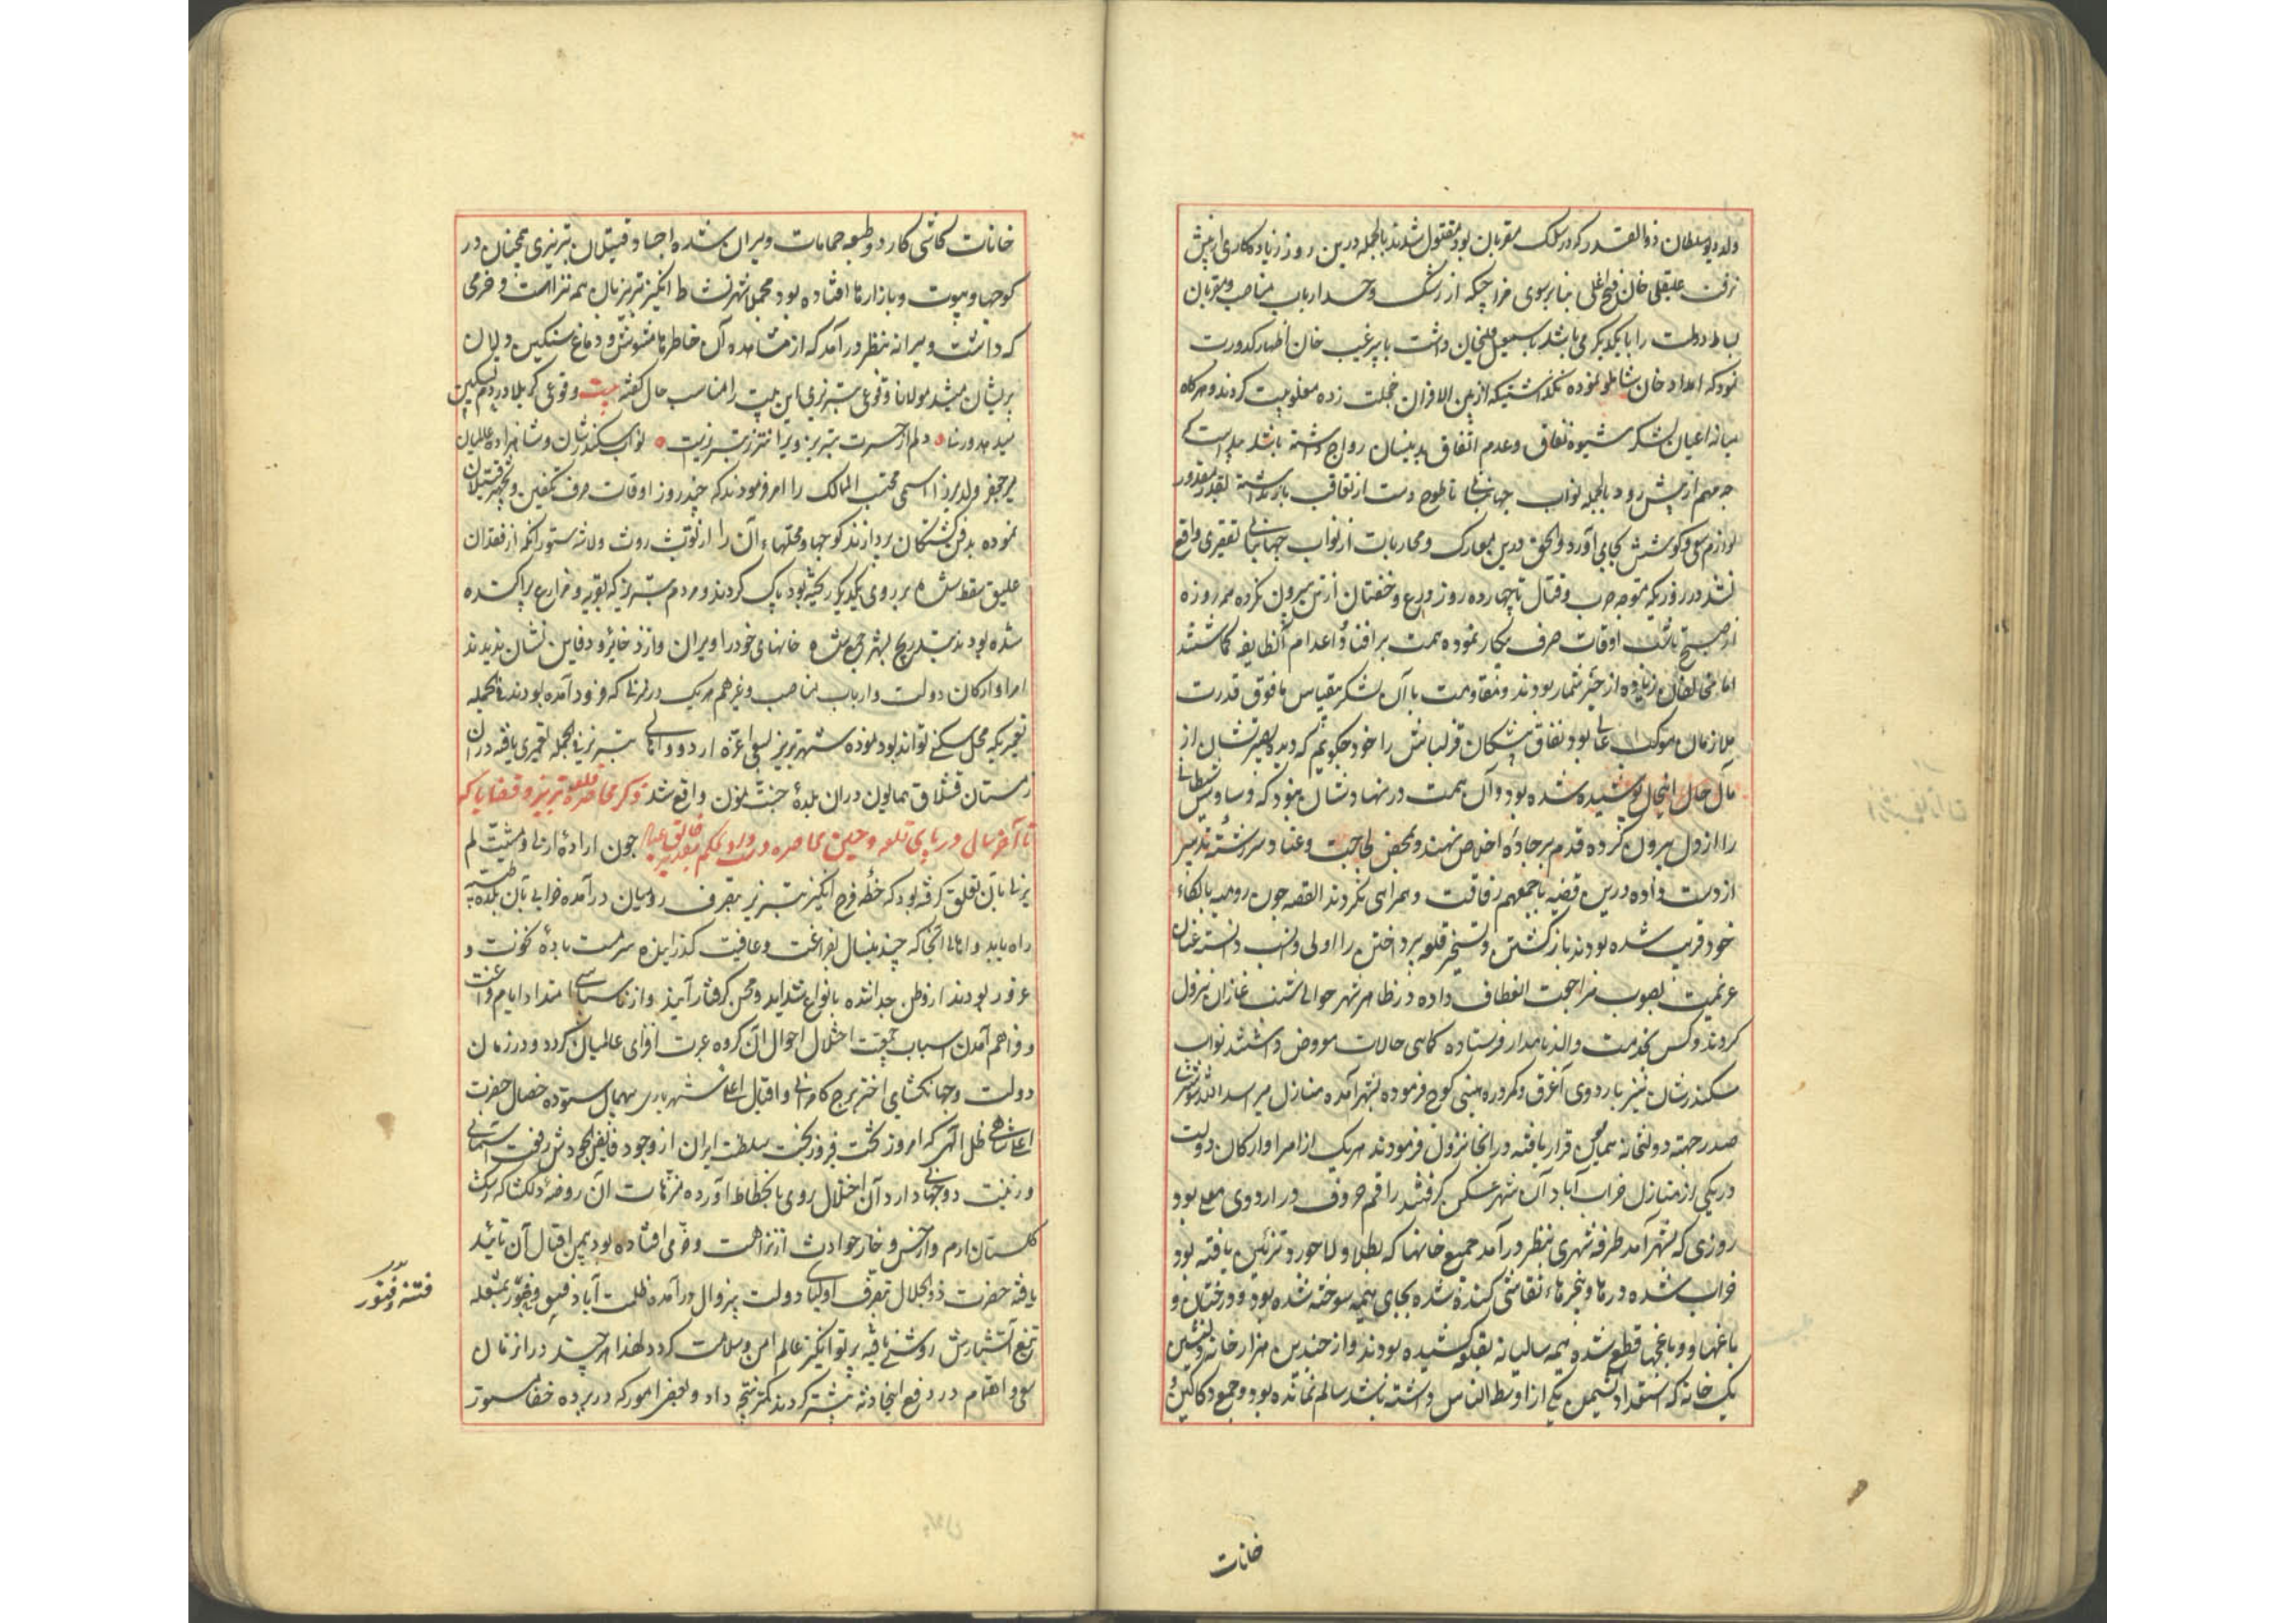 ولد دیو سلطان ذوالقدر که در سلک مقربان بود مقتول شدند بالجمله درین روز زیاده کاری از پیش
نرفت علیقلی خان فتح اغلی بنابر سوی مزاجیکه از رشک و حسد ارباب مناصب و مقربان
بساط دولت را با یکدیگر می باشد با سمعیل قلیخان داشت با پیرغیب خان اظهار کدورت
نمود که امداد خان شاملو نموده نگذاشتیکه از بین الاقران خجلت زده مغلوبیت کردند و هرگاه
میانه اعیان لشکر شیوه نفاق و عدم اتفاق بدینسان رواج داشته باشد پیداست که
چه مهم از پیش رود بالجمله نواب جهانبانی تا طوع دست از تعاقب بازنداشته بقدر مقدور
لوازم سعی و کوشش بجای آورد والحق درین معارک و محاربات از نواب جهانبانی تقصیری واقع
نشد در روزیکه متوجه حرب و قتال تا چهارده روز درع و خفتان از تن بیرون نکرده همه روزه
از صبح تا شب اوقات صرف پیکار نموده همت بر افنا و اعدام آنطایفه گماشتند
اما مخالفان زیاده از حیز شمار بودند و مقاومت با آن لشکر بیقیاس مافوق قدرت
ملازمان موکب عالی بود نفاق پیشگان قزلباش را خود چگویم که دیده بصیرتشان از
مآل حال اینحال پوشیده شده بود و آن همت در نهادشان نبود که وساوس شیطانی
را از دل بیرون کرده قدم بر جاده اخلاص نهند و بمحض لجاجت و عناد سررشته تدبیر
از دست داده درین قضیه با جمعهم رفاقت و همراهی نکردند القصه چون رومیه بالکاء
خود قریب شده بودند بازگشتن و تسخیر قلعه پرداختن را اولی و انسب دانسته عنان
عزیمت بصوب مراجعت انعطاف داده در ظاهر شهر حوالی شنب غازان نزول
کردند و کس بخدمت والد نامدار فرستاده کماهی حالات معروض داشتند نواب
سکندرشان نیز با اردوی آغرق و کروره بنی کوچ فرموده بشهر آمده منازل میر اسدالله شوشتری
صدر جهته دولتخانه همایون قرار یافته در آنجا نزول فرمودند هر یک از امرا و ارکان دولت
در یکی از منازل خراب آباد آن شهر عسکن گرفتند راقم حروف در اردوی معلی بود
روزی که بشهر آمد طرفه شهری بنظر درآمد جمیع خانها که بطلا و لاجورد تزئین یافته بود
خراب شده درها و پنجرهاء نقاشی کنده شده بجای هیمه سوخته شده بود و درختان و
باغها و باغچها قطع شده هیمه سالیانه بقلعه کشیده بودند و از چندین هزار خانه دلنشین
یک خانه که استعداد نشیمن یکی از اوسط الناس داشته باشد سالم نمانده بود و جمیع دکاکین و
خانات
خانات کاشی کار و طمعه حمامات ویران شده اجساد قتیلان تبریزی همچنان در
کوچها و بیوت و بازارها افتاده بود مجملا شهر نشاط انگیز تبریز بآن همه نزاهت و خرمی
که داشت ویرانه بنظر درآمد که از مشاهده آن خاطرها مشوش و دماغ سنگین دلان
پریشان میشد مولانا وقوعی تبریزی این بیت را مناسب حال گفته بیت وقوعی کربلا در دم تسکین
دلم از حسرت تبریز ویرانتر ز تبریزیت نواب سکندرشان و شاهزاده عالمیان
میرجعفر ولد میرزا اسمی محتسب الممالک را امر فرمودند که چند روز اوقات صرف تکفین و تجهیز قتیلان
نموده بدفن کشتگان پردازند کوچها و محلتهاء آن را از لوث روث و لاشه ستور آنکه از فقدان
علیق سقط شده بر روی یکدیگر ریخته بود پاک کردند و مردم تبریز که بقریه و مزارع پراکنده
شده بودند بتدریج بشهر جمع شده خانهای خود را ویران و از ذخائر و دفاین نشان ندیدند
امرا و ارکان دولت و ارباب مناصب و غیرهم هر یک در منزلی که فرود آمده بودند فی الجمله
تعمیریکه محل سکنی تواند بود نموده شهر تبریز بسعی اعزه اردو و اهالی تبریز فی الجمله تعمیری یافته در آن
زمستان قشلاق همایون در آن بلده جنت نمون واقع شد ذکر محاصره قلعه تبریز و قضایا که
تا آخر سال در پای قلعه و حین محاصره دست داد بحکم تقدیر خالق عباد چون اراده ازلی و مشیت لم
یزلی بآن تعلق گرفته بود که خطه فرح انگیز تبریز بتصرف رومیان درآمده خرابی بآن بلده طیبه
راه یابد و اهالی آنجا که چندینسال بفراغت و عافیت گذرانیده سرمست باده نخوت و
غرور بودند از وطن جدا شده بانواع شداید و محن گرفتار آیند و از ناسپاسی امتداد ایام وامنیت
و فراهم آمدن اسباب جمعیت اختلال احوال آن گروه عبرت افزای عالمیان گردد و در زمان
دولت و جهانگشای اختر برج کامرانی و اقبال اعنی شهریاری بیهمال ستوده خصال حضرت
اعلی شاهی ظل الهی که امروز تخت فیروز بخت سلطنت ایران از وجود فایض الجودش رفعت آسمانی
و زینت دو جهانی دارد آن اختلال روی بانحطاط آورده متنزهات آن روضه دلگشا که رشک
گلستان ارم و از خس و خار حوادث از نزاهت و خرمی افتاده بود بیمن اقبال آن تائید
یافته حضرت ذوالجلال بتصرف اولیای دولت بیزوال درآمده ظلمت آباد فسق و فجور بشعله
تیغ آتشبارش روشنی یافته پرتو انگیز عالم امن و سلامت گردد لهذا هر چند در آن زمان
سعی و اهتمام در دفع اینحادثه بیشتر کردند کمتر نتیجه داد و بعضی امور که در پرده خفا مستور
فتنه و فتور